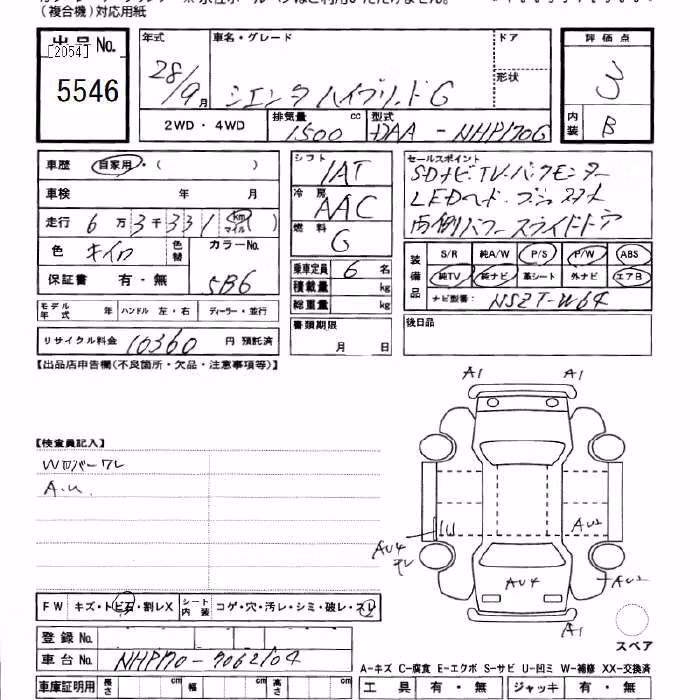 (複合機)対応用紙
出品No.
[2054]
5546
年式
28/9月
車名・グレード
シエンタハイブリッドG
ドア
形状
評価点
3
内装
B
2WD・4WD
排気量 cc
1500
型式
DAA-NHP170G
車歴 自家用・( )
車検 年 月
走行 6万3千331(km マイル)
色 キイロ 色替
カラーNo.
5B6
保証書 有・無
モデル年式 年
ハンドル 左・右
ディーラー・並行
リサイクル料金 10360 円 預託済
シフト
IAT
冷房
AAC
燃料
G
乗車定員 6 名
積載量 kg
総重量 kg
書類期限
月 日
セールスポイント
SDナビ・TV・バックモニター
LEDヘッド・プッシュスタート
両側パワースライドドア
装備品
S/R 純A/W P/S P/W ABS
純TV 純ナビ 革シート 外ナビ エアB
ナビ型番: NSZT-W64
後日品
【出品店申告欄(不良箇所・欠品・注意事項等)】
【検査員記入】
Wロバーワレ
A.U.
A1 A1
AU4
ワレ
1U
AU2
AU2
AU4
A1
スペア
FW キズ・トビ石・割レX
シート内装 コゲ・穴・汚レ・シミ・破レ・スレ
登録No.
車台No. NHP170-7062104
車庫証明用 長さ cm 幅 cm 高さ cm
A-キズ C-腐食 E-エクボ S-サビ U-凹ミ W-補修 XX-交換済
工具 有・無 ジャッキ 有・無